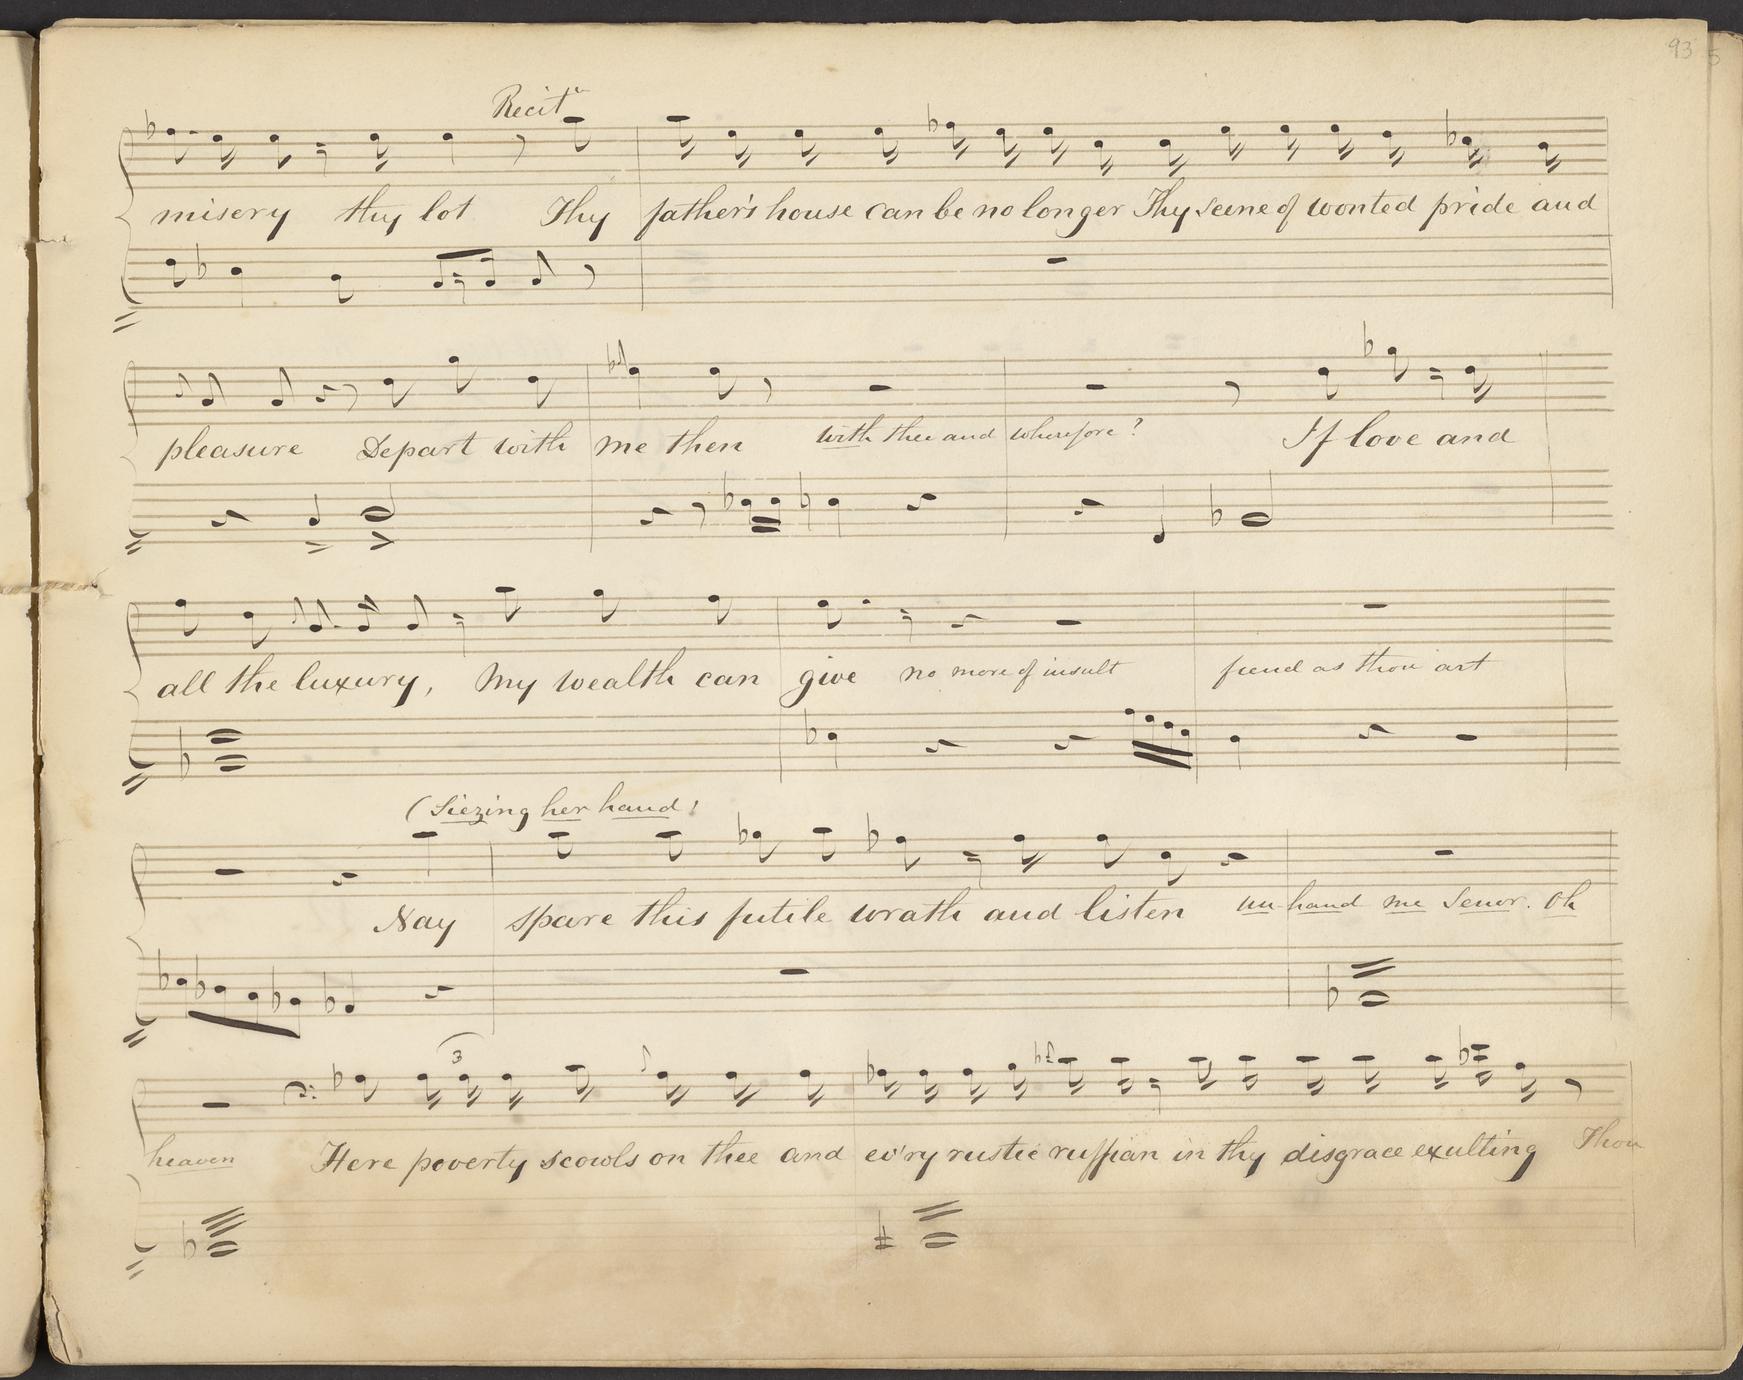 93
5
Recit^e
misery thy lot Thy father's house can be no longer Thy scene of wonted pride and
pleasure Depart with me then with thee and wherefore? If love and
all the luxury, My wealth can give no more of insult fiend as thou art
(Siezing her hand)
Nay spare this futile wrath and listen un-hand me Senor. Oh
3
heaven Here poverty scowls on thee and ev'ry rustic ruffian in thy disgrace exulting Thou